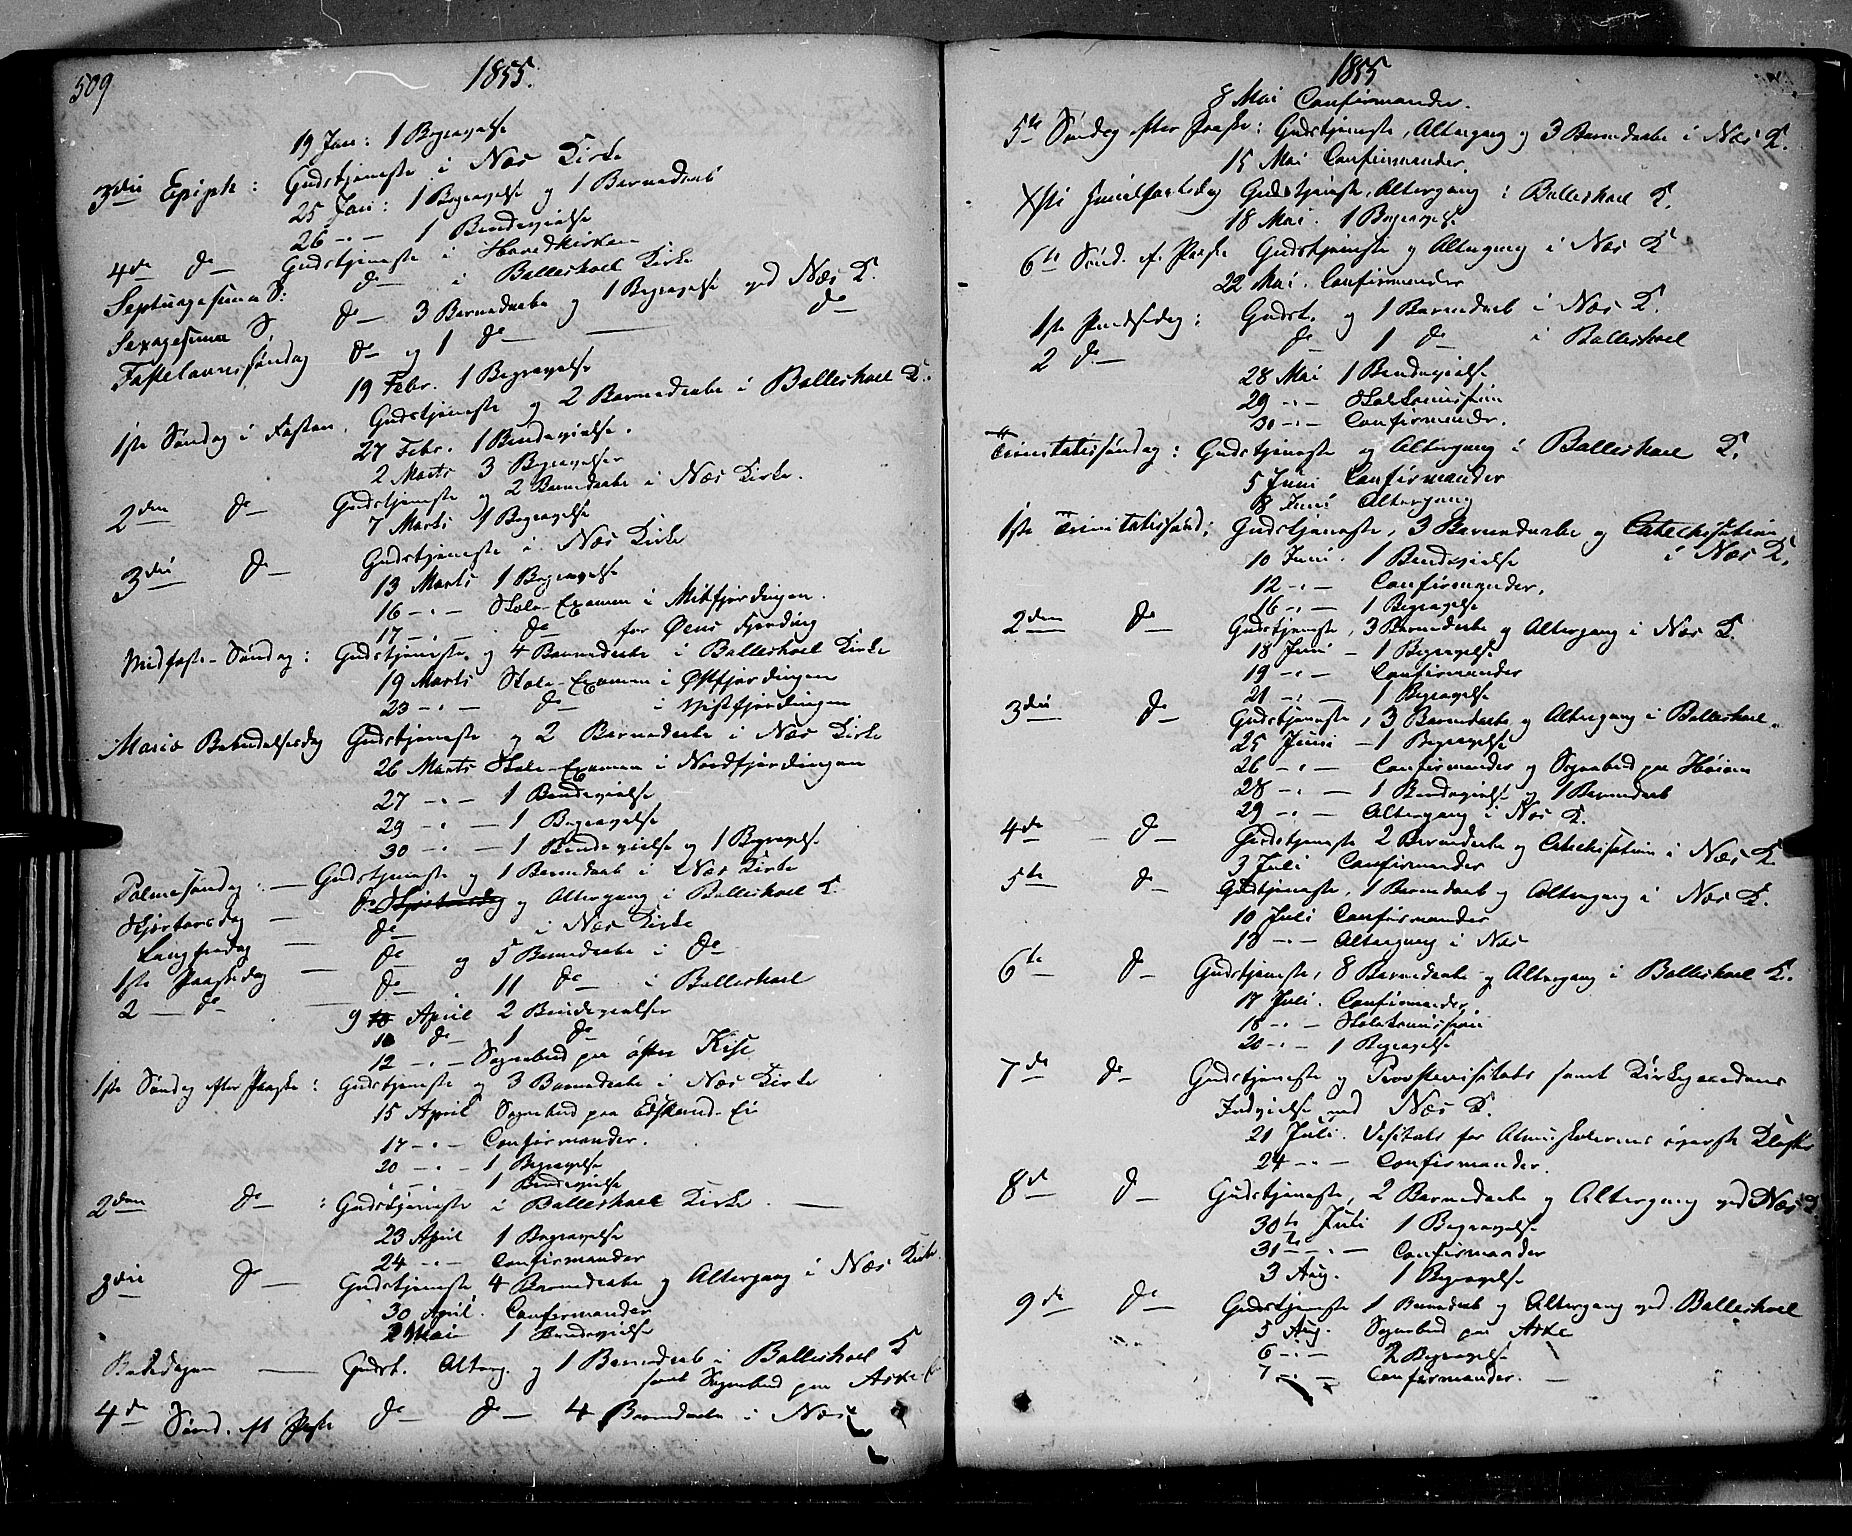 509
1855.
19 Jan: 1 Begravelse
3die Epiph: Gudstjeneste i Næs Kirke
25 Jan: 1 Begravelse og 1 Barnedaab
26 -"- 1 Brudevielse
4de Do Gudstjeneste i Hovedkirken
Septuagesima S: Do i Baltishoel Kirke
Sexagesima S. Do 3 Barnedaabe og 1 Begravelse ved Næs K.
Fastelavnssøndag Do og 1 Do Do
19 Febr. 1 Begravelse
1ste Søndag i Fasten. Gudstjeneste og 2 Barnedaabe i Balleshoel K.
27 Febr. 1 Brudevielse.
2 Marts 3 Begravelser
2den Do Gudstjeneste og 2 Barnedaabe i Næs Kirke.
7 Marts 1 Begravelse
3die Do Gudstjeneste i Næs Kirke
13 Marts 1 Begravelse
16 -"- Skole-Examen i Mitfjerdingen.
17 -"- Do for Øens Fjerding
Midfaste-Søndag: Gudstjeneste og 4 Barnedaabe i Balleshoel Kirke
19 Marts Skole-Examen i Østfjerdingen
23 -"- Do i Vestfjerdingen
Mariæ Bebudelsesdag Gudstjeneste og 2 Barnedaabe i Næs Kirke
26 Marts Skole-Examen i Nordfjerdingen
27 -"- 1 Brudevielse
29 -"- 1 Begravelse
30 -"- 1 Brudevielse og 1 Begravelse
Palmesøndag: Gudstjeneste og 1 Barnedaab i Næs Kirke
Skjertorsdag Do Skjertorsdag og Altergang i Balleshoel K.
Langfredag Do i Næs Kirke
1ste Paaskedag Do og 5 Barnedaabe i Do
2 Do Do 11 Do i Balleshoel
9 10 April 2 Brudevielser
10 Do 1 Do
12 -"- Sognebud paa østre Kise
1ste Søndag efter Paaske: Gudstjeneste og 3 Barnedaabe i Næs Kirke
15 April Sognebud paa Edslund-Ei
17 -"- Confirmander.
20 -"- 1 Begravelse
" -"- 1 Brudevielse
2den Do: Gudstjeneste i Balleshoel Kirke.
23 April 1 Begravelse
24 -"- Confirmander
3die Do Gudstjeneste, 4 Barnedaabe og Altergang i Næs Kirke.
30 April. Confirmander
2 Mai 1 Brudevielse
Bededagen Gudst. Alterg. og 1 Barnedaab i Balleshoel K
samt Sognebud paa Aske
4de Sønd. eft. Paaske Do Do 4 Barnedaabe i Næs
1855
8 Mai Confirmander.
5te Søndag efter Paaske: Gudstjeneste, Altergang og 3 Barnedaabe i Næs K.
15 Mai Confirmander.
Xsti Himmelfartsdag Gudstjeneste, Altergang i Balleshoel K.
18 Mai. 1 Begravelse
6te Sønd. f. Paaske Gudstjeneste og Altergang i Næs K
22 Mai. Confirmander
1ste Pindsedag: Gudst. og 1 Barnedaab i Næs K.
2 Do Do 1 Do i Balleshoel
28 Mai 1 Brudevielse
29 -"- Skolekomission
30 -"- Confirmander.
Trinitatissøndag: Gudstjeneste og Altergang i Balleshoel K.
5 Juni Confirmander
8 Juni Altergang
1ste Trinitatissønd: Gudstjeneste, 3 Barnedaabe og Catechisation
i Næs K.
10 Juni. 1 Brudevielse
12 -"- Confirmander.
16 -"- 1 Begravelse
2den Do Gudstjeneste, 3 Barnedaabe og Altergang i Næs K.
18 Juni - 1 Begravelse
19 -"- Confirmander
21 -"- 1 Begravelse
3die Do Gudstjeneste, 3 Barnedaabe og Altergang i Balleshoel.
25 Juni - 1 Begravelse
26 -"- Confirmander og Sognebud paa Hoien
28 -"- 1 Brudevielse og 1 Barnedaab
29 -"- Altergang i Næs K.
4de Do Gudstjeneste 2 Barnedaabe og Catechisation i Næs K.
3 Juli Confirmander
5te Do Gudstjeneste, 1 Barnedaab og Altergang i Næs K.
10 Juli Confirmander
13 -"- Altergang i Næs
6te Do Gudstjeneste, 8 Barnedaabe og Altergang i Balleshoel K.
17 Juli. Confirmander
18 -"- Skolekomission
20 -"- 1 Begravelse
7de Do Gudstjeneste og Provstevisitats samt Kirkegaardens
Indvielse ved Næs K.
21 Juli. Visitats for Almuskolernes øverste Klasse
24 -"- Confirmander.
8de Do Gudstjeneste, 2 Barnedaabe og Altergang ved Næs K.
30te Juli 1 Begravelse
31te -"- Confirmander
3 Aug. 1 Begravelse
9de Do Gudstjeneste 1 Barnedaab og Altergang ved Balleshoel
5 Aug. Sognebud paa Aske
6 -"- 2 Begravelse
7 -"- Confirmander.